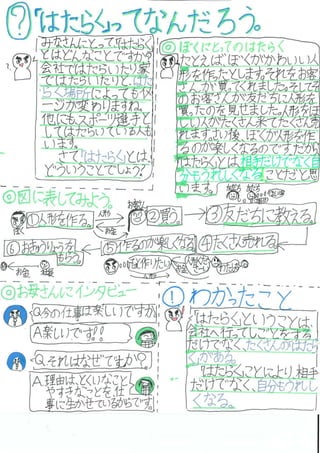 ?「はたらく」ってなんだろう。
みなさんにとって「はたらく」
とはどんなことですか?
会社ではたらいたり家
ではたらいたりとはた
らく場所によってもイメ
ージが変わりますね。
他にもスポーツ選手と
してはたらいている人も
います。
さて「はたらく」とは
どういうことでしょう?
◎ぼくにとってのはたらく
たとえば、ぼくがかわいい人
形を作ったとします。それをお客
さんが買ってくれました。そしてそ
のお客さんが友だちに人形を
買ったのを見せました。人形をほ
しい人がたくさん来てたくさん売
れます。さい後、ぼくが人形を作
るのが楽しくなるのですだから
はたらくとは相手だけでなく自
分もうれしくなることだと思
います。
◎図に表してみよう。
①人形を作る。
人形
②買う。
③友だちに教える。
④たくさんうれる。
⑤作るのが楽しくなる
⑥おきゅうりょうを
もらう。
お金
作りたい
お金
◎お母さんにインタビュー
Q.今の仕事は楽しいですか
A楽しいです!!
Q.それはなぜですか?
A.理由は、とくいなこと
やすきなことを、仕
事に生かせているからです。
! わかったこと
「はたらく」ということは
会社へ行ってしごとをする
だけでなく、たくさんのはたら
くがある。
はたらくことにより、相手
だけでなく、自分もうれし
くなる。